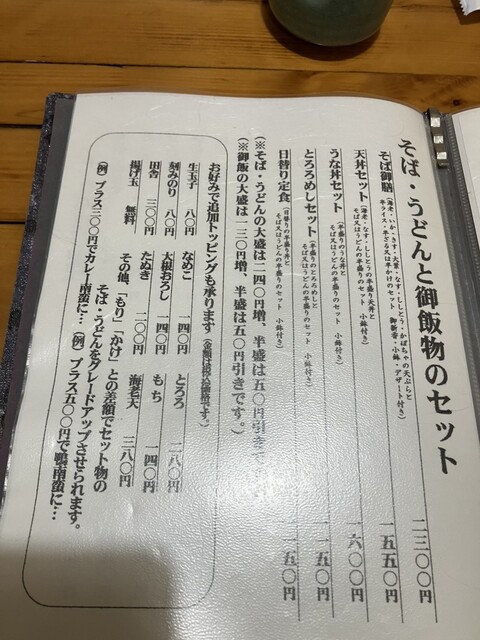 そば・うどんと御飯物のセット
そば御膳 (海老・いか・きす・大葉・なす・ししとう・かぼちゃの天ぷらと
半ライス・半ざる又は半かけのセット 御新香・小鉢・デザート付き) 二三〇〇円
天丼セット (海老・なす・ししとうの半盛り天丼と
そば又はうどんの半盛りのセット 小鉢付き) 一五五〇円
うな丼セット (半盛りのうな丼と
そば又はうどんの半盛りのセット 小鉢付き) 一六〇〇円
とろろめしセット (半盛りのとろろめしと
そば又はうどんの半盛りのセット 小鉢付き) 一一五〇円
日替り定食 (日替りの半盛り丼と
そば又はうどんの半盛りのセット 小鉢付き) 一一五〇円
(※そば・うどんの大盛は二四〇円増、半盛は五〇円引きで
(※御飯の大盛は一三〇円増、半盛は五〇円引きです。)
お好みで追加トッピングも承ります (金額は税込価格です。)
生玉子 八〇円 なめこ 一四〇円 とろろ 二八〇円
刻みのり 八〇円 大根おろし 一四〇円 もち 一四〇円
田舎 三〇〇円 たぬき 一〇〇円 海老天 三八〇円
揚げ玉 無料 その他、「もり」「かけ」との差額でセット物の
そば・うどんをグレードアップさせられます。
(例) プラス三〇〇円でカレー南蛮に… (例) プラス五〇〇円で鴨南蛮に…